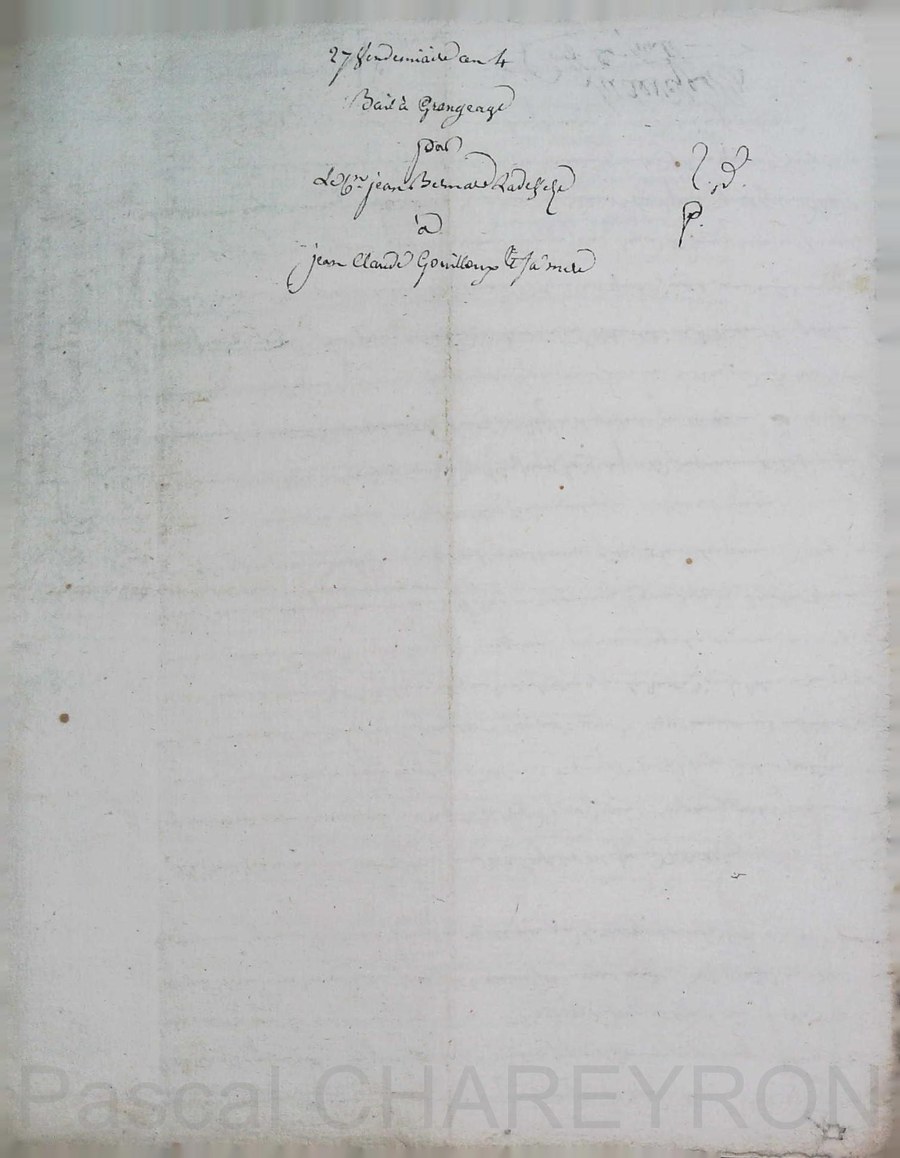 27 Vendemiaire an 4
Bail à Grangeage
par
Le Cen jean Bernard Ladeveze
à
jean Claude Gouilloux Et sa mere
2. d.
P.
Pascal CHAREYRON